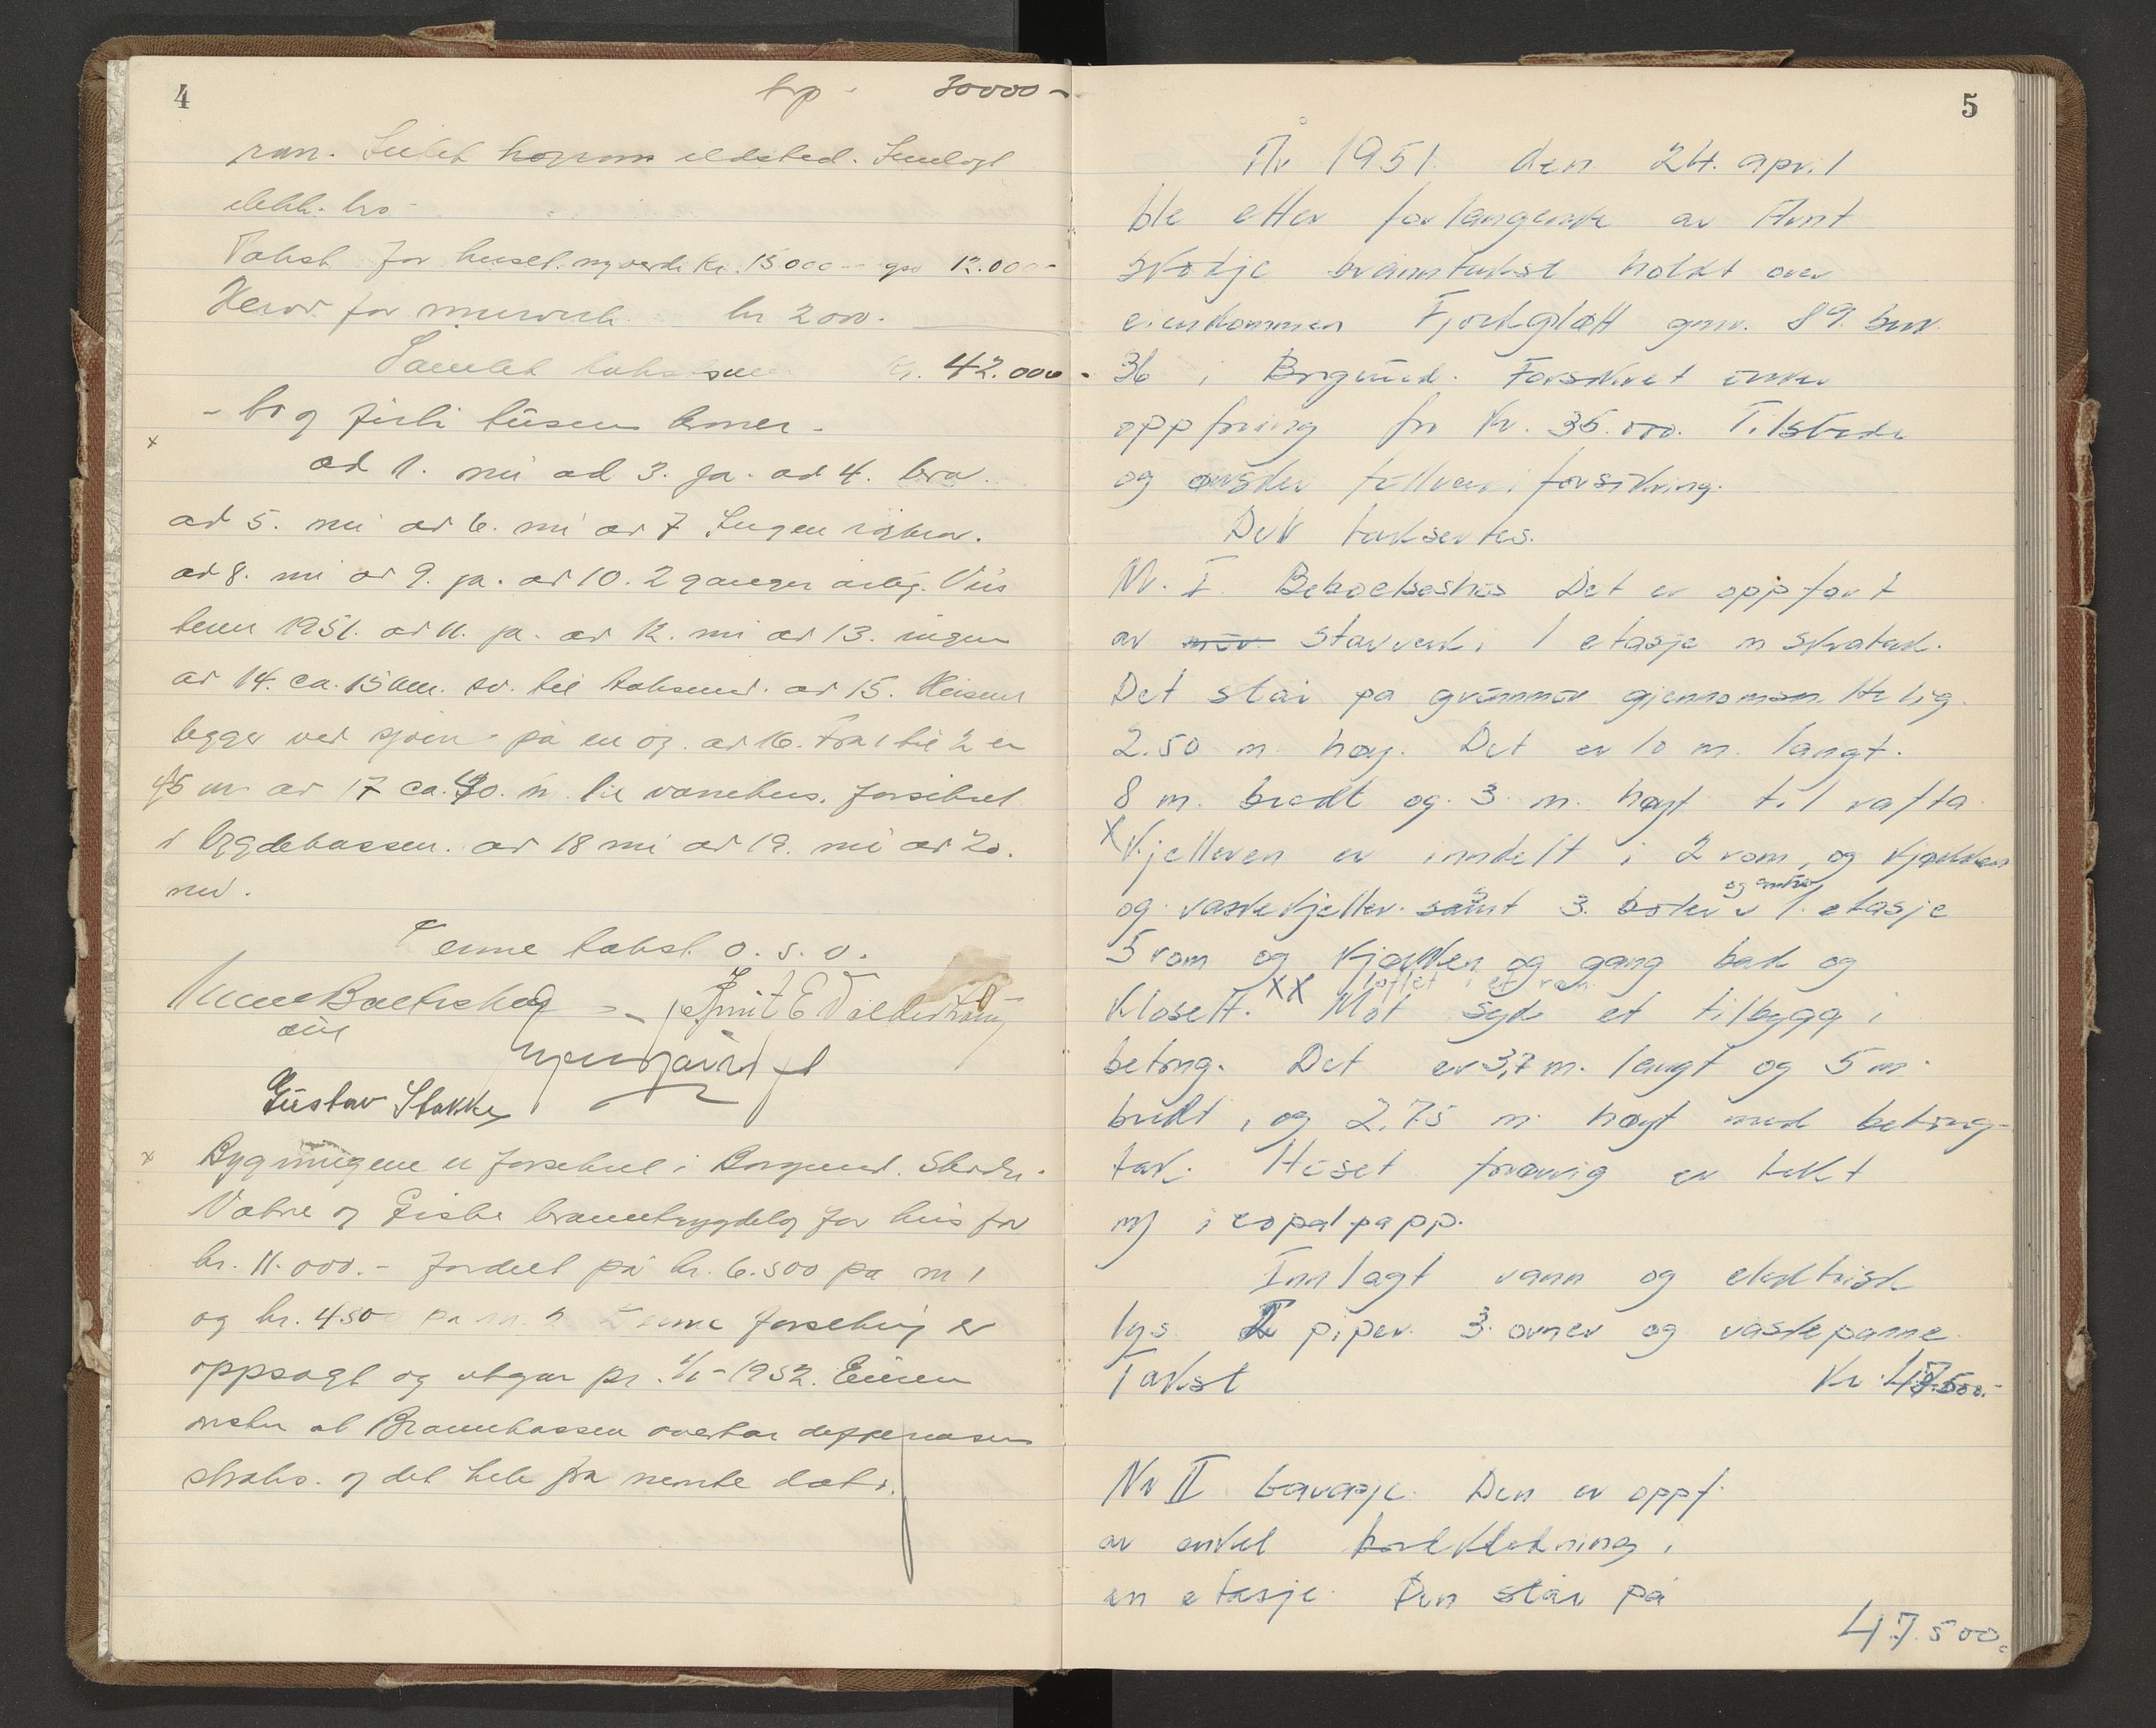 4
30000 -
rom. Intet ildsted. Innlagt
elektr. kro
Takst for huset. nyverdi kr. 15000 - 12.000 -
Herav for murverk kr 2000.
Samlet takstsum Kr. 42.000 -
- to og firti tusen kroner -
x
ad 1. nei ad 3. ja. ad 4. bra.
ad 5. nei ad 6. nei ad 7 Ingen
ad 8. nei ad 9. ja. ad 10. 2 ganger årlig.
1951. ad 11. ja. ad 12. nei ad 13. ingen
ad 14. ca. 15 km. til ad 15. Husene
ligger ved sjøen på en øy. ad 16. Fra 1 til 2 er
45 m ad 17 ca. m. til forsikret
i bygdekassen. ad 18 nei ad 19. nei ad 20.
nei.
Denne takst o. s. v.
Gustav Stokke
x Bygningene er forsikret i Borgund. Skodje.
Vatne og Giske brannbygdelag for hus for
kr. 11.000.- fordelt på kr. 6.500 på nr 1
og kr. 4500 på nr. 2 Denne forsikring er
oppsagt og utgår pr. 1/1-1952. Eieren
ønsker at Brannkassen overtar differensen
straks. og det hele fra nemte dato.
5
År 1951. den 24. april
ble etter forlangende av Arnt
Skodje branntakst holdt over
eiendommen Fjordgløtt gnr. 89. bnr.
36 i Borgund. Forsikret under
oppføring for Kr. 35.000. Tilstede
og ønsker fullverdiforsikring.
Det taksertes.
Nr. I. Beboelseshus Det er oppført
av mur stavverk i 1 etasje m skratak.
Det står på grunnmur gjennomsnittelig
2.50 m. høy. Det er 10 m. langt.
8 m. bredt og 3 m. høyt til rafta
x Kjelleren er inndelt i 2 rom, og kjøkken
og vaskekjeller. samt 3. boder og entre i 1. etasje
5 rom og kjøkken og gang bad og
Klosett. xx loftet i et rom Mot syd et tilbygg i
betong. Det er 3,7 m. langt og 5 m.
bredt, og 2,75 m høyt med betong-
tak. Huset forøvrig er tekt
m/ icopalpapp.
Innlagt vann og elektrisk
lys 2 piper 3 ovner og vaskepanne.
Takst Kr. 47.500.-
Nr II Garasje. Den er oppf.
av enkel bordkledning i
en etasje. Den står på
47.500.